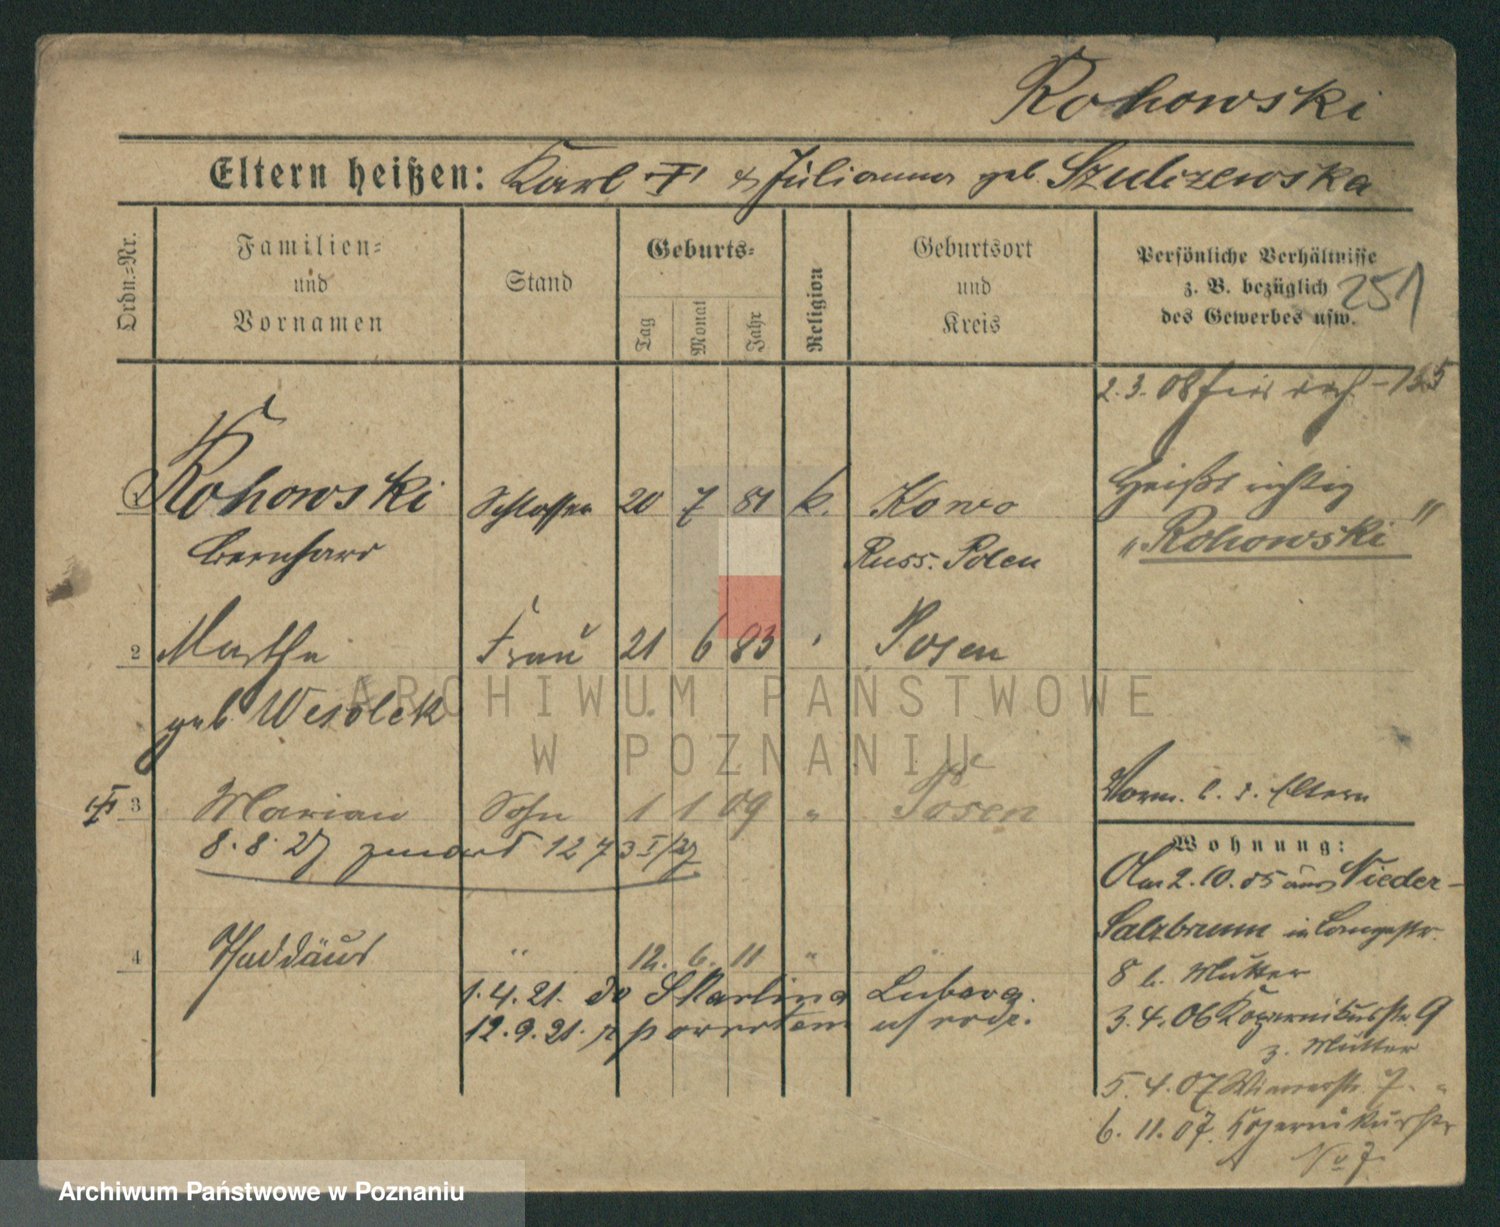 Rohowski
Eltern heißen: Karl † & Julianna geb. Szulczewska
Ordn.=Nr.
Familien=
und
Vornamen
Stand
Geburts=
Tag
Monat
Jahr
Religion
Geburtsort
und
Kreis
Persönliche Verhältnisse
z. B. bezüglich
des Gewerbes usw.
251
2. 3. 08
1 Rohowski Schlosser 20 7 81 k. Kowo
Bernhard Russ. Polen
Heißt richtig
„Rohowski"
2 Marthe Frau 21 6 83 ' Posen
geb. Wesolek
3 Marian Sohn 1 1 09 " Posen
8. 8. 27
Vorm. b. d. Eltern
4 Thaddäus " 12. 6. 11 " "
1. 4. 21. do
12. 9. 21. z powrotem
Wohnung:
Am 2. 10. 05 aus Nieder-
Salzbrunn in Langestr.
8 b. Mutter
3. 4. 06 Kopernikusstr. 9
z. Mutter
5. 4. 07 7. "
6. 11. 07. Kopernikusstr
No 7.
ARCHIWUM PAŃSTWOWE
W POZNANIU
Archiwum Państwowe w Poznaniu